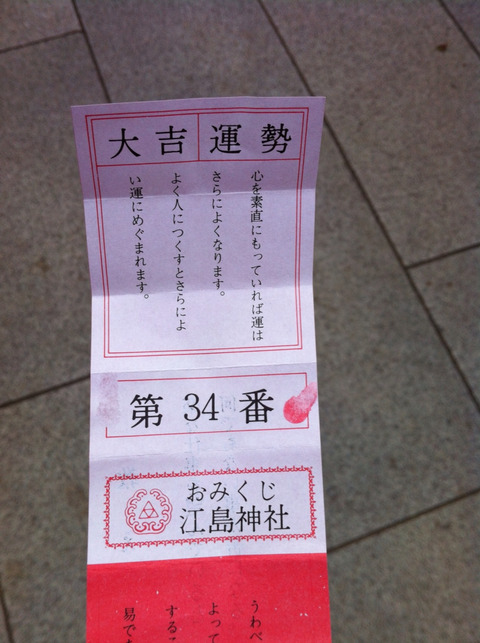 大吉運勢
心を素直にもっていれば運は
さらによくなります。
よく人につくすとさらによ
い運にめぐまれます。
第 34 番
おみくじ
江島神社
うわべ
よって
するこ
易で